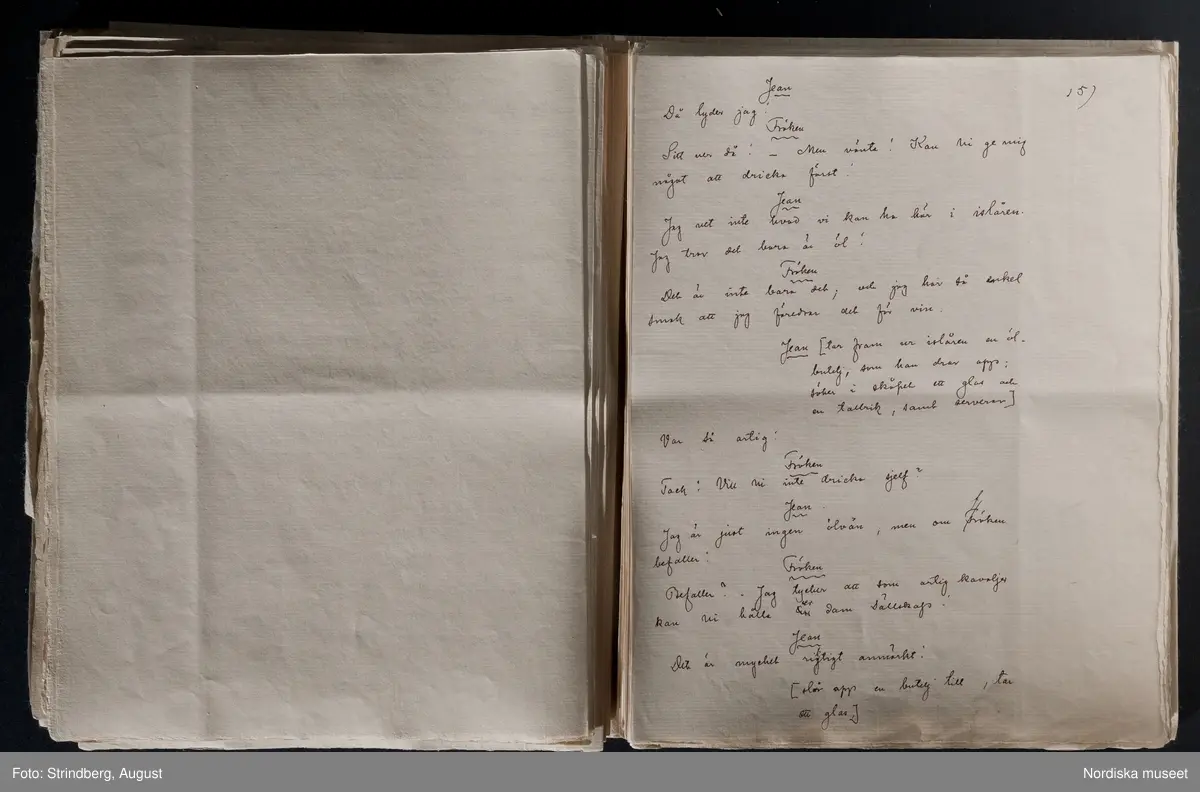 15)
Jean
Då lyder jag!
Fröken
Sitt ner då! – Men vänta! Kan Ni ge mig
något att dricka först!
Jean
Jag vet inte hvad vi kan ha här i islåren.
Jag tror det bara är öl!
Fröken
Det är inte bara det; och jag har så enkel
smak att jag föredrar det för vin.
Jean [tar fram ur islåren en öl-
butelj, som han drar opp;
söker i skåpet ett glas och
en tallrik, samt serverar]
Var så artig!
Fröken
Tack! Vill Ni inte dricka sjelf?
Jean
Jag är just ingen ölvän, men om Fröken
befaller!
Fröken
Befaller? – Jag tycker att som artig kavaljer
kan Ni hålla er dam sällskap!
Jean
Det är mycket rigtigt anmärkt!
[slår opp en butelj till, tar
ett glas]
Foto: Strindberg, August
Nordiska museet